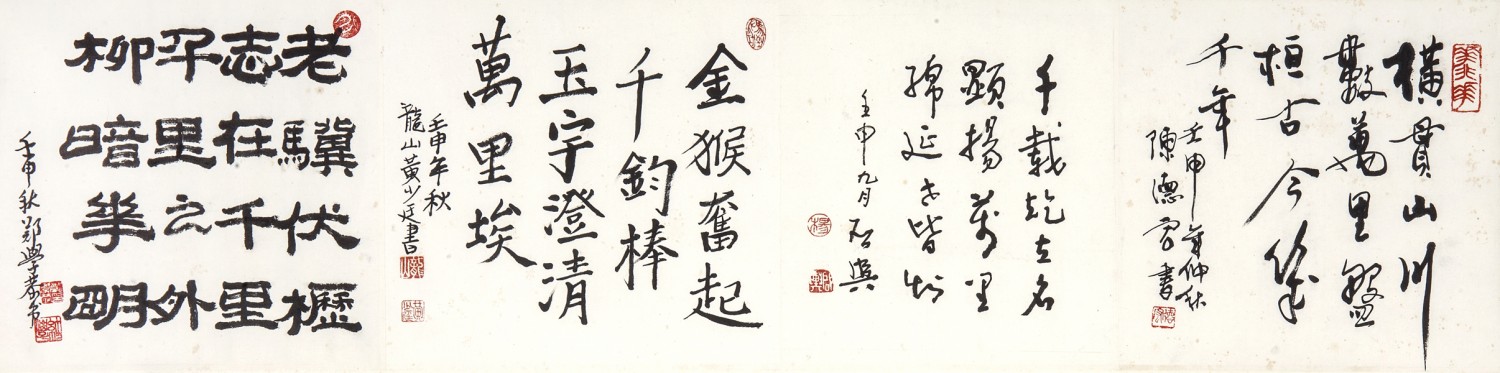 橫貫山川
數萬里盤
桓古今幾
千年
壬申年仲秋
陳德書
千載屹立名
顯揚萬里
綿延世皆知
壬申九月
金猴奮起
千鈞棒
玉宇澄清
萬里埃
壬申年秋
龍山黃少廷書
老驥伏櫪
志在千里
千里之外
柳暗華明
壬申秋鄭學恭書